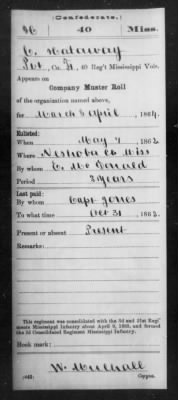 (Confederate.)
H 40 Miss.
C. Hataway
Pvt, Co. F, 40 Reg't Mississippi Vols.
Appears on
Company Muster Roll
of the organization named above,
for March & April, 1864.
Enlisted:
When May 7, 1862
Where Neshoba Co Miss
By whom C. McDonald
Period 3 years
Last paid:
By whom Capt Jones
To what time Oct 31, 1863.
Present or absent Present
Remarks:
This regiment was consolidated with the 3d and 31st Regi-
ments Mississippi Infantry about April 9, 1865, and formed
the 3d Consolidated Regiment Mississippi Infantry.
Book mark:
W. Mulhall
(642) Copyist.